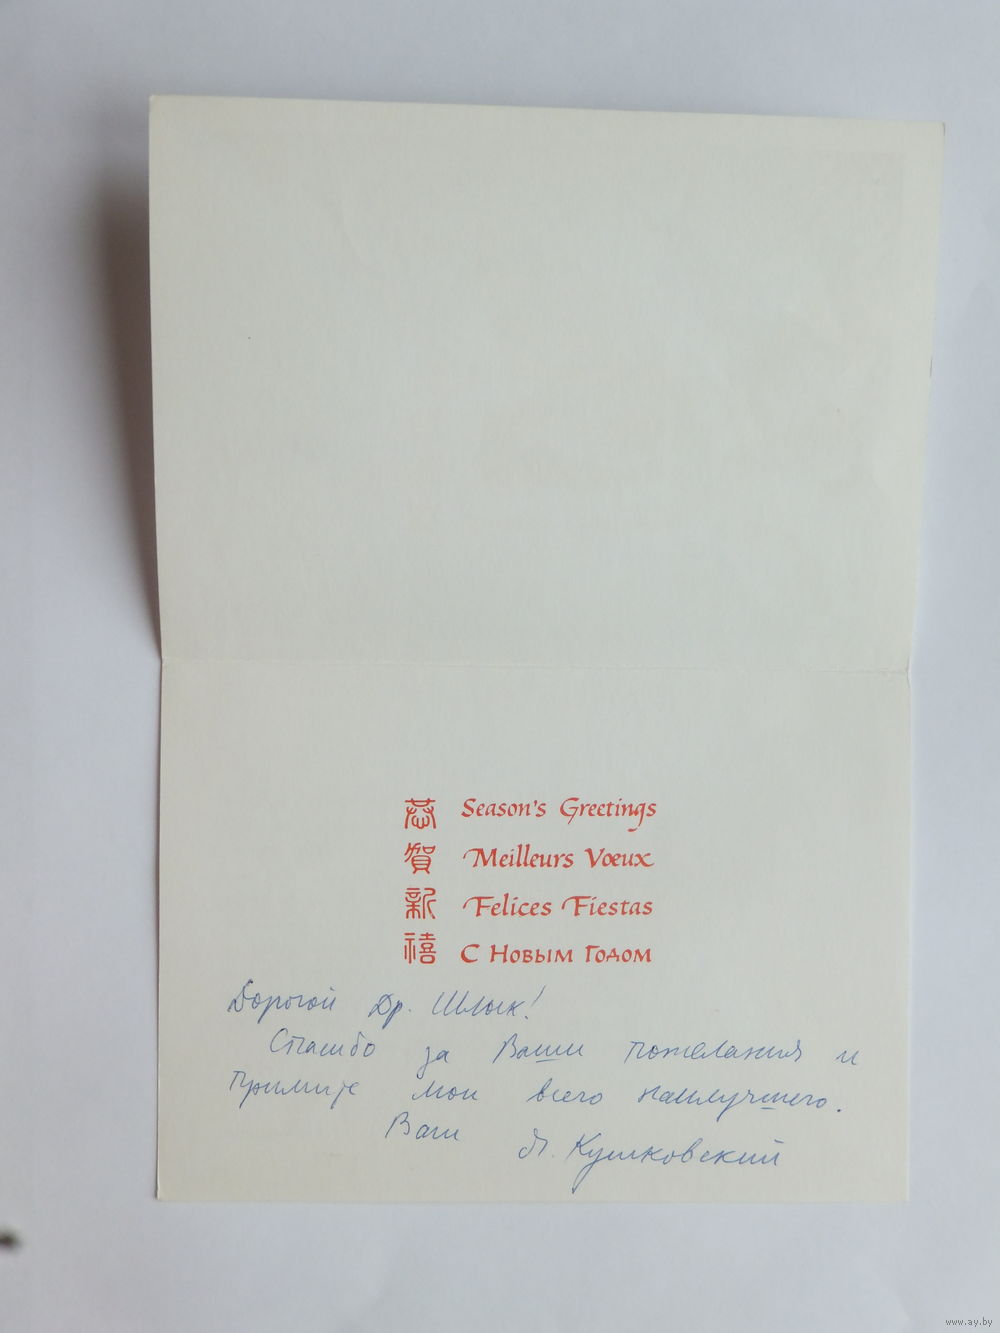 恭賀新禧
Season's Greetings
Meilleurs Vœux
Felices Fiestas
С Новым Годом
Дорогой Др. Шлык!
Спасибо за Ваши пожелания и
примите мои всего наилучшего.
Ваш
Кушковский
www.ay.by